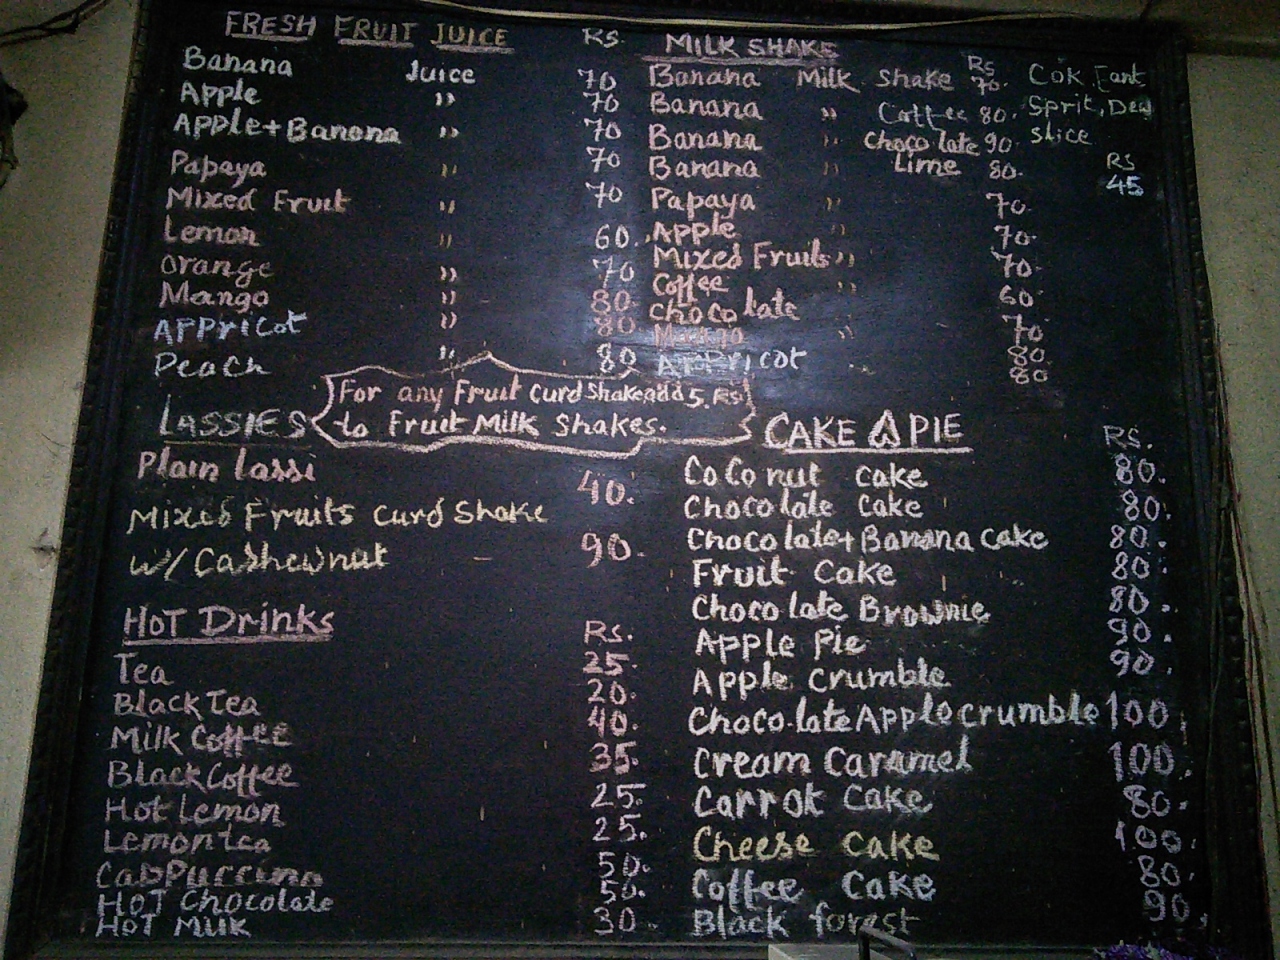 FRESH FRUIT JUICE Rs.
Banana Juice 70
Apple " 70
Apple+Banana " 70
Papaya " 70
Mixed Fruit " 70
Lemon " 60.
Orange " 70
Mango " 80.
APPricot " 80
Peach " 80
MILK SHAKE Rs
Banana Milk Shake 70.
Banana " Coffee 80.
Banana " Chocolate 90
Banana " Lime 80.
Papaya " 70
Apple 70.
Mixed Fruits " 70
Coffee " 60
Chocolate 70
Mango " 80
APPricot 80
Cok Fant
Sprit, Dew
Slice
Rs
45
For any Fruit Curd Shake add 5. Rs.
to Fruit Milk Shakes.
LASSIES
Plain lassi 40.
Mixed Fruits Curd Shake
w/ Cashewnut - 90.
HOT Drinks Rs.
Tea 25.
Black Tea 20.
Milk Coffee 40.
Black Coffee 35.
Hot Lemon 25.
Lemon tea 25.
CapPuccino 50.
HOT Chocolate 50.
HOT Milk 30.
CAKE & PIE Rs.
CoCo nut cake 80.
Chocolate cake 80.
Chocolate+Banana cake 80.
Fruit Cake 80.
Chocolate Brownie 80.
Apple Pie 90.
Apple crumble 90.
Chocolate Apple crumble 100.
Cream Caramel 100.
Carrot cake 80.
Cheese cake 100.
Coffee cake 80.
Black forest 90.